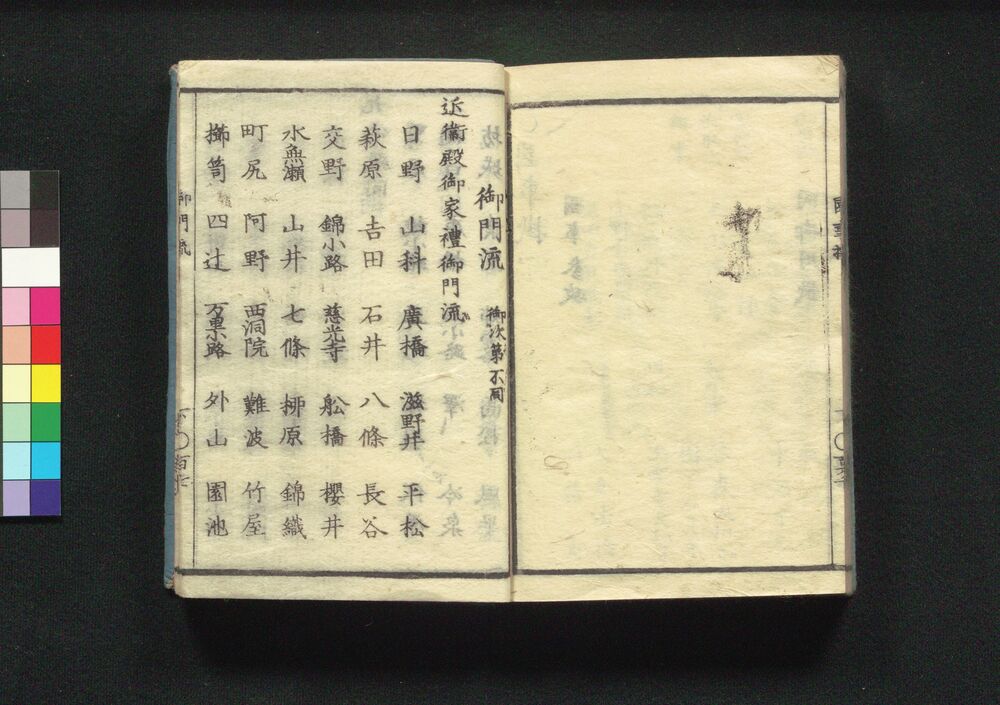 御門流 御次第不同
近衞殿御家禮御門流
日野 山科 廣橋 滋野井 平松
萩原 吉田 石井 八條 長谷
交野 錦小路 慈光寺 舩橋 櫻井
水無瀬 山井 七條 栁原 錦織
町尻 阿野 西洞院 難波 竹屋
櫛笥 四辻 万里小路 外山 園池
御門流